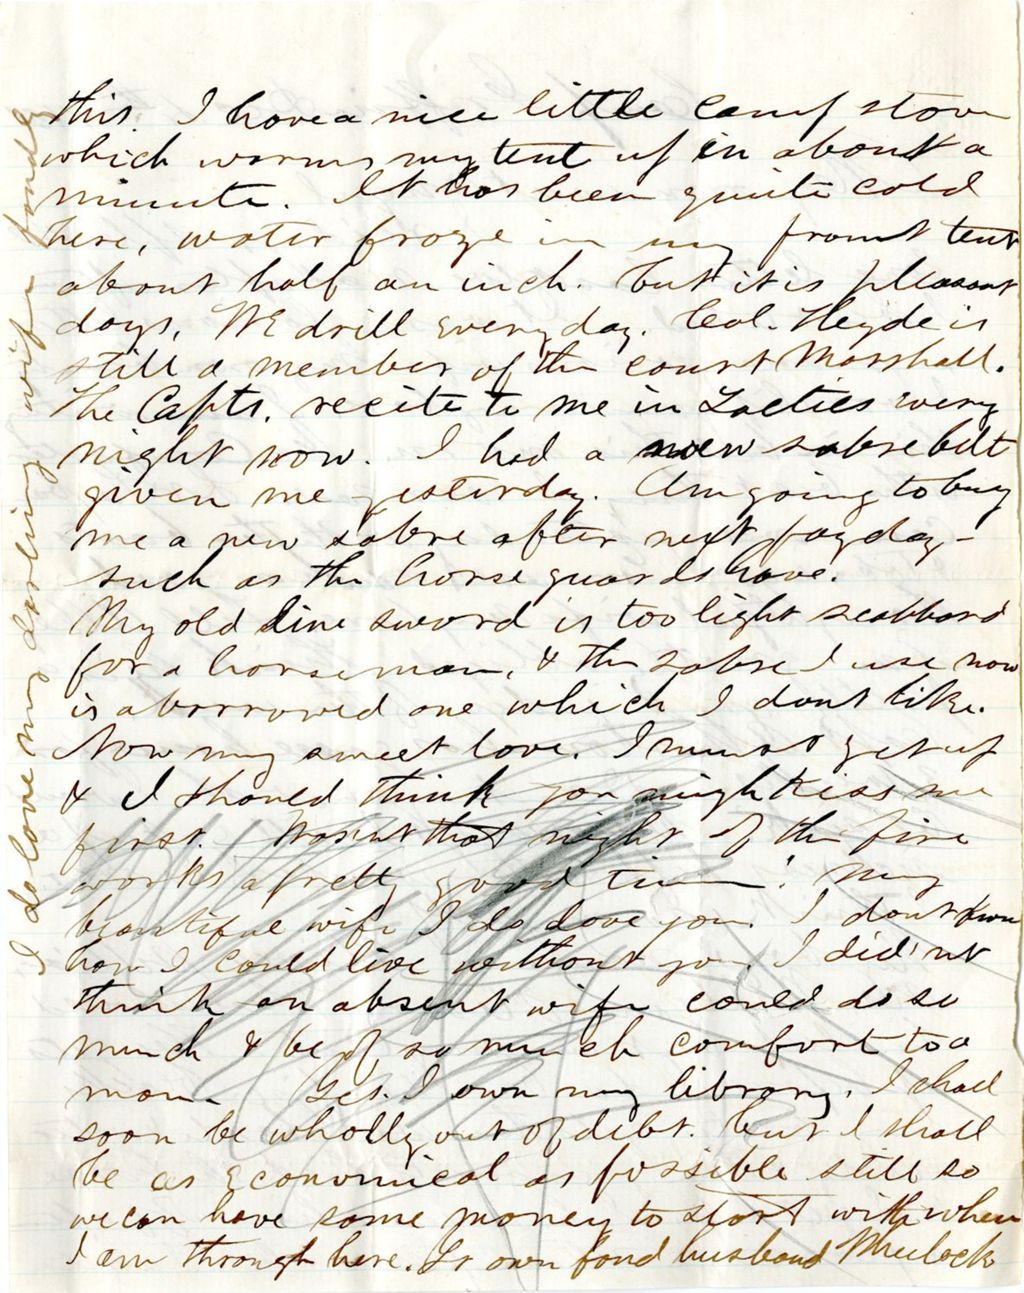 this. I have a nice little camp stove
which warms my tent up in about a
minute. It has been quite cold
here, water froze in my front tent
about half an inch. but it is pleasant
days, We drill every day. Col. Heyde is
still a member of the court Marshall.
The Capts. recite to me in Tactics every
night now. I had a new sabre belt
given me yesterday. Am going to buy
me a new sabre after next payday -
such as the horse guards have.
My old line sword is too light scabbard
for a horseman, & the sabre I use now
is a borrowed one which I dont like.
Now my sweet love. I must get up
& I should think you might kiss me
first. Wasnt that night of the fire
works a pretty good time! My
beautiful wife I do love you. I dont know
how I could live without you. I did'nt
think an absent wife could do so
much & be of so much comfort to a
man. Yes. I own my library. I shall
soon be wholly out of debt. but I shall
be as economical as possible still so
we can have some money to start with when
I am through here. Yr own fond husband
I do love my darling wife fondly